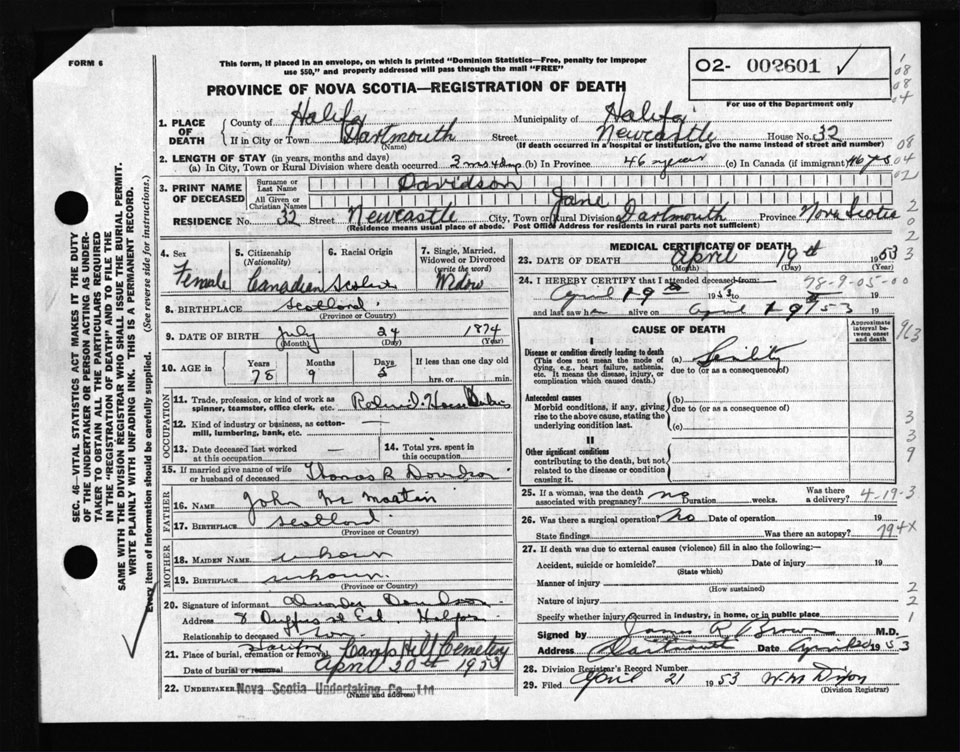 FORM 6
This form, if placed in an envelope, on which is printed "Dominion Statistics—Free, penalty for improper
use $50," and properly addressed will pass through the mail "FREE"
PROVINCE OF NOVA SCOTIA—REGISTRATION OF DEATH
O2- 002601 ✓
For use of the Department only
1. PLACE OF DEATH
County of Halifax Municipality of Halifax
If in City or Town Dartmouth Street Newcastle House No. 32
(Name) (If death occurred in a hospital or institution, give the name instead of street and number)
2. LENGTH OF STAY (in years, months and days)
(a) In City, Town or Rural Division where death occurred 3 mos 4 days (b) In Province 46 years (c) In Canada (if immigrant) 46 yrs
3. PRINT NAME OF DECEASED
Surname or Last Name Davidson
All Given or Christian Names Jane
RESIDENCE No. 32 Street Newcastle City, Town or Rural Division Dartmouth Province Nova Scotia
(Residence means usual place of abode. Post Office Address for residents in rural parts not sufficient)
4. Sex Female
5. Citizenship (Nationality) Canadian
6. Racial Origin
7. Single, Married, Widowed or Divorced (write the word) Widow
8. BIRTHPLACE Scotland
(Province or Country)
9. DATE OF BIRTH July 24 1874
(Month) (Day) (Year)
10. AGE in Years 78 Months 9 Days If less than one day old hrs. or min.
OCCUPATION
11. Trade, profession or kind of work as spinner, teamster, office clerk, etc.
12. Kind of industry or business, as cotton-mill, lumbering, bank, etc. —
13. Date deceased last worked at this occupation —
14. Total yrs. spent in this occupation —
15. If married give name of wife or husband of deceased Thomas R Davidson
FATHER
16. NAME John
17. BIRTHPLACE Scotland
(Province or Country)
MOTHER
18. MAIDEN NAME unknown
19. BIRTHPLACE unknown
(Province or Country)
20. Signature of informant Davidson
Address 8 Duffus st Halifax
Relationship to deceased Son
21. Place of burial, cremation or removal Halifax Camp Hill Cemetery
Date of burial or removal April 20th 1953
22. UNDERTAKER Nova Scotia Undertaking Co., Ltd
MEDICAL CERTIFICATE OF DEATH
23. DATE OF DEATH April 19th 1953
(Month) (Day) (Year)
24. I HEREBY CERTIFY that I attended deceased from: 78-9-05-00
April 19th 1953 to 19
and last saw h alive on April 19th 53 19
CAUSE OF DEATH
Approximate interval between onset and death
I
Disease or condition directly leading to death
(This does not mean the mode of dying, e.g., heart failure, asthenia, etc. It means the disease, injury, or complication which caused death.)
(a) Senility
due to (or as a consequence of)
Antecedent causes
Morbid conditions, if any, giving rise to the above cause, stating the underlying condition last.
(b)
due to (or as a consequence of)
(c)
II
Other significant conditions
contributing to the death, but not related to the disease or condition causing it.
25. If a woman, was the death associated with pregnancy? no Duration weeks. Was there a delivery? 4-19-3
26. Was there a surgical operation? No Date of operation 19
State findings Was there an autopsy? 794X
27. If death was due to external causes (violence) fill in also the following:—
Accident, suicide or homicide? Date of injury 19
(State which)
Manner of injury
(How sustained)
Nature of injury
Specify whether injury occurred in industry, in home, or in public place
Signed by James R Brown M.D.
Address Dartmouth Date April 1953
28. Division Registrar's Record Number
29. Filed April 21 1953 W M Dixon
(Division Registrar)
SEC. 46—VITAL STATISTICS ACT MAKES IT THE DUTY
OF THE UNDERTAKER OR PERSON ACTING AS UNDER-
TAKER TO OBTAIN ALL THE PARTICULARS REQUIRED
IN THE "REGISTRATION OF DEATH" AND TO FILE THE
SAME WITH THE DIVISION REGISTRAR WHO SHALL ISSUE THE BURIAL PERMIT.
WRITE PLAINLY WITH UNFADING INK. THIS IS A PERMANENT RECORD.
Every item of Information should be carefully supplied. (See reverse side for instructions.)